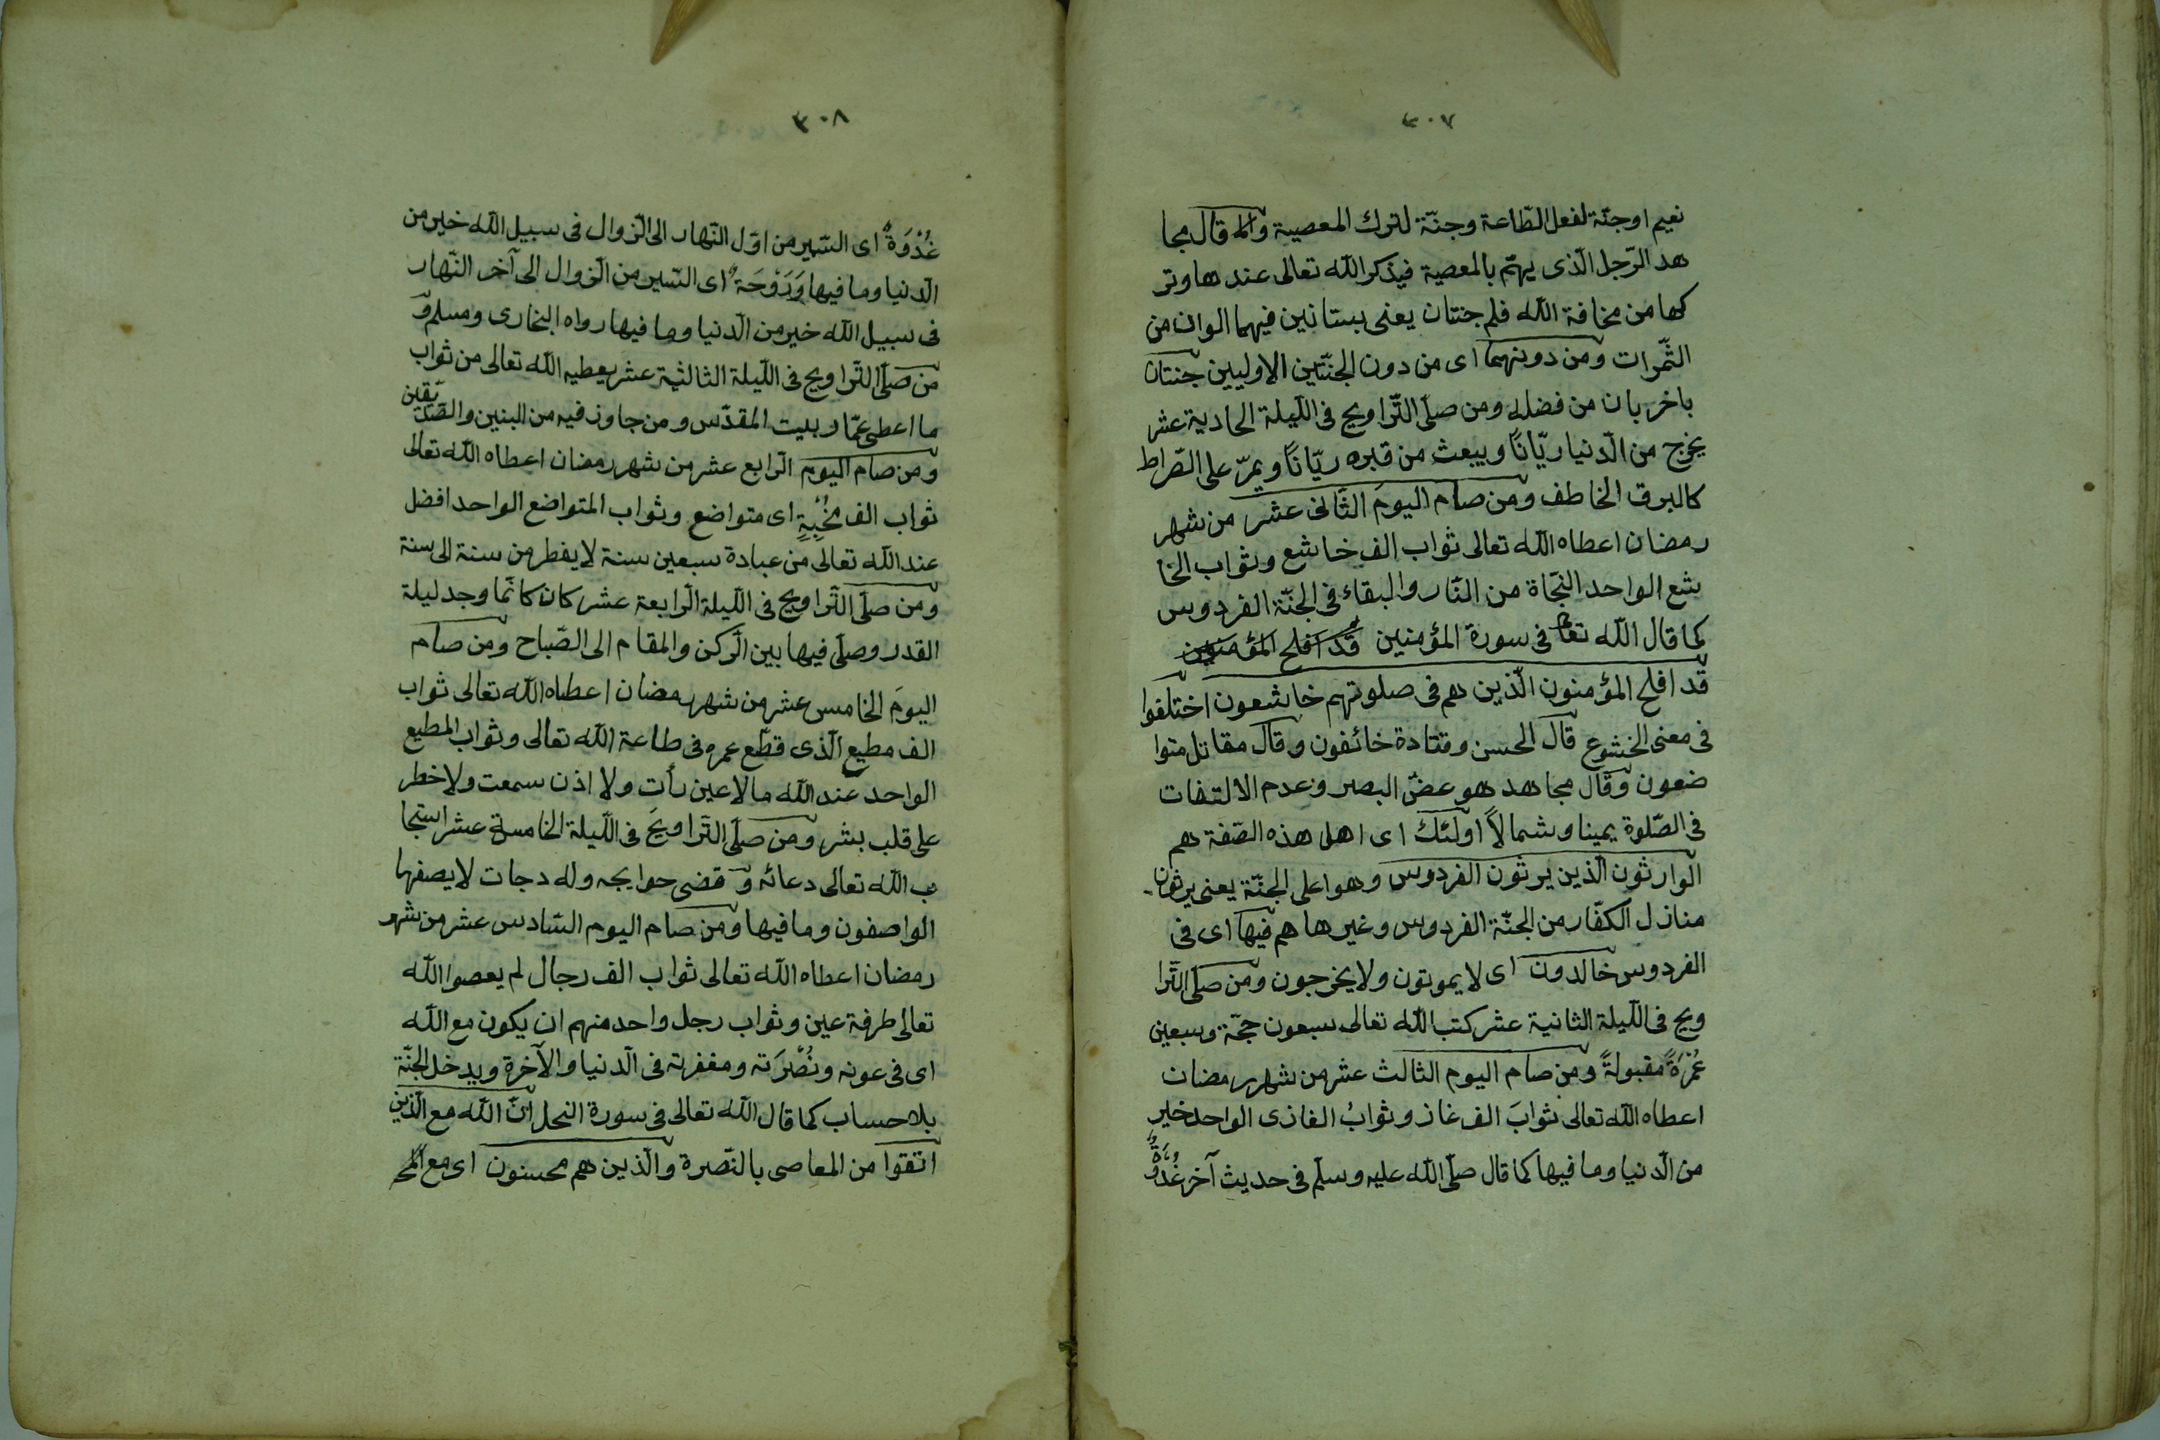 ٣٠٧
نعيم او جنّة لفعل الطّاعة وجنّة لترك المعصية وقال مجا
هد الرّجل الّذى يهمّ بالمعصية فيذكر الله تعالى عندها وتر
كها من مخافة الله فله جنتان يعنى بستانين فيهما الوان من
الثّمرات ومن دونهما اى من دون الجنّتين الاوليين جنتان
باخريان من فضله ومن صلّى التّراويح فى اللّيلة الحادية عشر
يخرج من الدّنيا ريّانًا ويبعث من قبره ريّانًا ويمرّ على الصّراط
كالبرق الخاطف ومن صام اليومَ الثّانى عشر من شهر
رمضان اعطاه الله تعالى ثواب الف خاشع وثواب الخا
شع الواحد النّجاة من النّار والبقاء فى الجنّة الفردوس
كما قال الله تعا فى سورة المؤمنين قد افلح المؤمنين
قد افلح المؤمنون الّذين هم فى صلوتهم خاشعون اختلفوا
فى معنى الخشوع قال الحسن وقتادة خائفون وقال مقاتل متوا
ضعون وقال مجاهد هو غضّ البصر وعدم الالتفات
فى الصّلوة يمينا وشمالاً اولئك اى اهل هذه الصّفة هم
الوارثون الّذين يرثون الفردوس وهو اعلى الجنّة يعنى يرثون
منازل الكفّار من الجنّة الفردوس وغيرها هم فيها اى فى
الفردوس خالدون اى لا يموتون ولا يخرجون ومن صلّى التّرا
ويح فى اللّيلة الثانية عشر كتب الله تعالى سبعون حجّة وسبعين
عُمْرَةً مقبولةً ومن صام اليوم الثالث عشر من شهر رمضان
اعطاه الله تعالى ثوابَ الف غاز وثوابُ الغازى الواحد خير
من الدّنيا وما فيها كما قال صلّى الله عليه وسلّم فى حديث آخر غُدْوَةٌ
٣٠٨
غُدْوَةٌ اى السّير من اوّل النّهار الى الزّوال فى سبيل الله خير من
الدّنيا وما فيها وَرَوْحَةٌ اى السّير من الزّوال الى آخر النّهار
فى سبيل الله خير من الدّنيا وما فيها رواه البخارى ومسلم و
من صلّى التّراويح فى اللّيلة الثالثة عشر يعطيه الله تعالى من ثواب
ما اعطى عمّار بيت المقدّس ومن جاوز فيه من النبيين والصّدّيقين
ومن صام اليوم الرّابع عشر من شهر رمضان اعطاه الله تعالى
ثواب الف مُخْبِتٍ اى متواضع وثواب المتواضع الواحد افضل
عند الله تعالى من عبادة سبعين سنة لا يفطر من سنة الى سنة
ومن صلّى التّراويح فى اللّيلة الرّابعة عشر كان كانّما وجد ليلة
القدر وصلّى فيها بين الرّكن والمقام الى الصّباح ومن صام
اليومَ الخامس عشر من شهر رمضان اعطاه الله تعالى ثواب
الف مطيع الّذى قطّع عمره فى طاعة الله تعالى وثواب المطيع
الواحد عند الله ما لا عين رأت ولا اذن سمعت ولا خطر
على قلب بشر ومن صلّى التّراويحَ فى اللّيلة الخامسة عشر استجا
ب الله تعالى دعائه و قضى حوايجه وله دجات لا يصفها
الواصفون وما فيها ومن صام اليوم السّادس عشر من شهر
رمضان اعطاه الله تعالى ثواب الف رجال لم يعصوا الله
تعالى طرفة عين وثواب رجل واحد منهم ان يكون مع الله
اى فى عونه ونُصْرَته ومغفرته فى الدّنيا والآخرة ويدخل الجنّة
بلا حساب كما قال الله تعالى فى سورة النحل انّ الله مع الّذين
اتقوا من المعاصى بالنّصرة والّذين هم محسنون اى مع